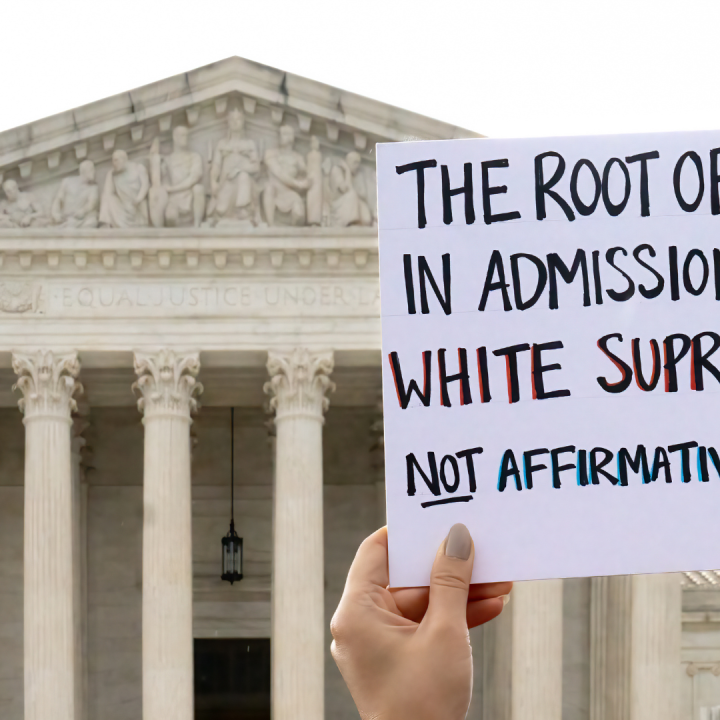 EQUAL JUSTICE UNDER LA
THE ROOT OF
IN ADMISSION
WHITE SUPR
NOT AFFIRMATIV